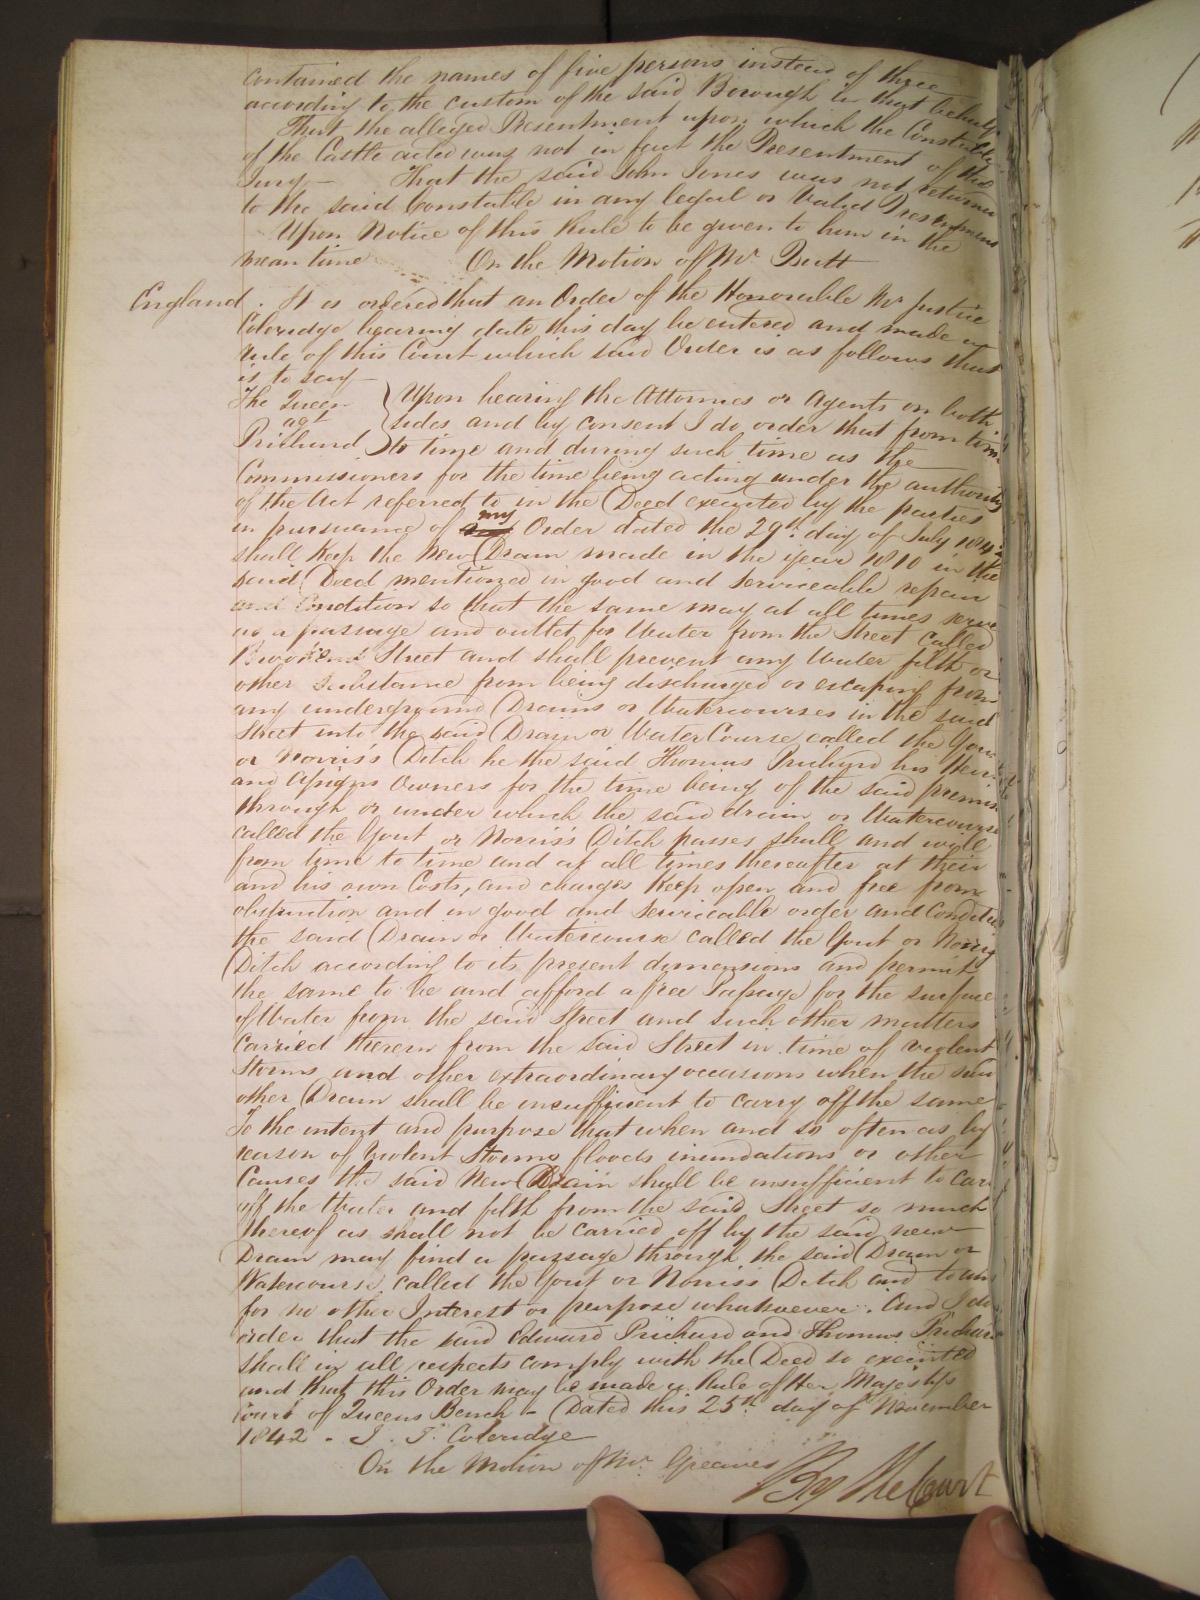 contained the names of five persons instead of three
according to the custom of the said Borough in that behalf
That the alleged Presentment upon which the Constable
of the Castle acted was not in fact the Presentment of the
Jury — That the said John Jones was not returned
to the said Constable in any legal or valid Presentment
Upon Notice of this Rule to be given to him in the
mean time On the Motion of Mr. Butt
England. It is ordered that an Order of the Honorable Mr Justice
Coleridge bearing date this day be entered and made a
Rule of this Court which said Order is as follows that
is to say —
The Queen
agt
Prichard
Upon hearing the Attornies or Agents on both
sides and by consent I do order that from time
to time and during such time as the
Commissioners for the time being acting under the authority
of the Act referred to in the Deed executed by the parties
in pursuance of my Order dated the 29th. day of July 1842
shall keep the New Drain made in the year 1810 in the
said Deed mentioned in good and serviceable repair
and Condition so that the same may at all times serve
as a passage and outlet for Water from the Street called
Street and shall prevent any Water filth or
other Substance from being discharged or escaping from
any underground Drains or Watercourses in the said
Street into the said Drain or Water Course called the Gout
or Norris's Ditch he the said Thomas Prichard his Heirs
and Assigns Owners for the time being of the said premises
through or under which the said drain or Watercourse
called the Gout or Norris's Ditch passes shall and will
from time to time and at all times thereafter at their
and his own Costs, and charges keep open and free from
obstruction and in good and serviceable order and Condition
the said Drain or Watercourse called the Gout or Norris
Ditch according to its present dimensions and permit
the same to be and afford a free Passage for the surface
of Water from the said Street and such other matters
carried therein from the said Street in time of violent
Storms and other extraordinary occasions when the said
other Drain shall be insufficient to carry off the same
To the intent and purpose that when and so often as by
reason of Violent Storms floods inundations or other
Causes the said New Drain shall be insufficient to carry
off the Water and filth from the said Street so much
thereof as shall not be carried off by the said new
Drain may find a passage through the said Drain or
Watercourse called the Gout or Norris's Ditch and to and
for no other Interest or purpose whatsoever. And I do
order that the said Edward Prichard and Thomas Prichard
shall in all respects comply with the Deed so executed
and that this Order may be made a Rule of Her Majestys
Court of Queens Bench — Dated this 25th day of November
1842 - J. T. Coleridge
On the Motion of Mr. Greaves
By the Court